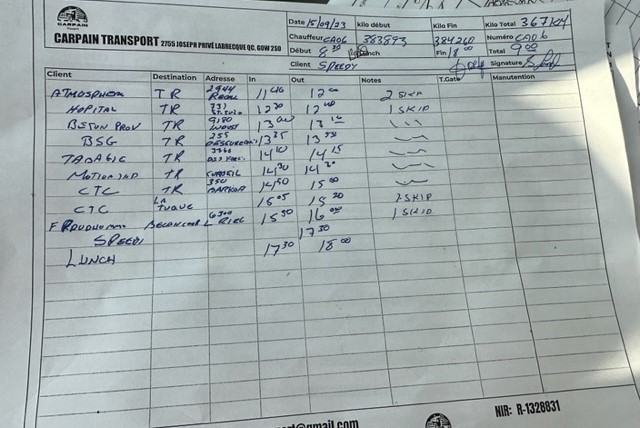 CARPAIN
CARPAIN TRANSPORT 2755 JOSEPH PRIVÉ LABRECQUE QC. G0W 2S0
Date 15/09/23 Kilo début Kilo Fin Kilo Total 367 KM
Chauffeur CA06 383893 384260 Numéro CA06
Début 8 30 Lunch Fin 18 00 Total 9.00
Client SPEEDY Signature
Client Destination Adresse In Out Notes T.Gate Manutention
ATMOSPHERE TR 2944 11 40 12 00 2 SKIP
HOPITAL TR 731 12 20 12 40 1 SKIP
BSTON PROV TR 9180 13 00 13 10
BSG TR 255 13 25 13 30
TABAGIE TR 14 10 14 15
TR 14 20 14 30
CTC TR 350 14 50 15 00
CTC LA TUQUE 15 05 15 20 2 SKIP
F PRUDHOMME BECANCOUR 6300 L RIEL 15 50 16 00 1 SKIP
SPEEDI 17 30
LUNCH 17 30 18 00
@gmail.com
NIR: R-1328831